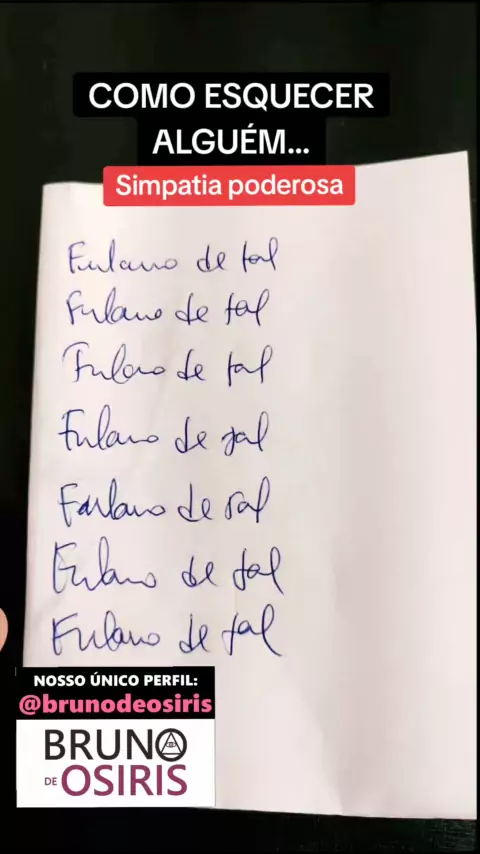 COMO ESQUECER
ALGUÉM...
Simpatia poderosa
Fulano de tal
Fulano de tal
Fulano de tal
Fulano de tal
Fulano de tal
Fulano de tal
Fulano de tal
NOSSO ÚNICO PERFIL:
@brunodeosiris
BRUNO
DE OSIRIS